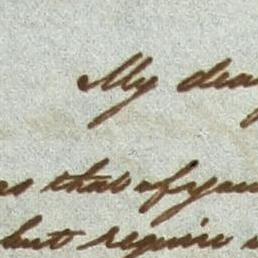 My dear
as that of your
but require